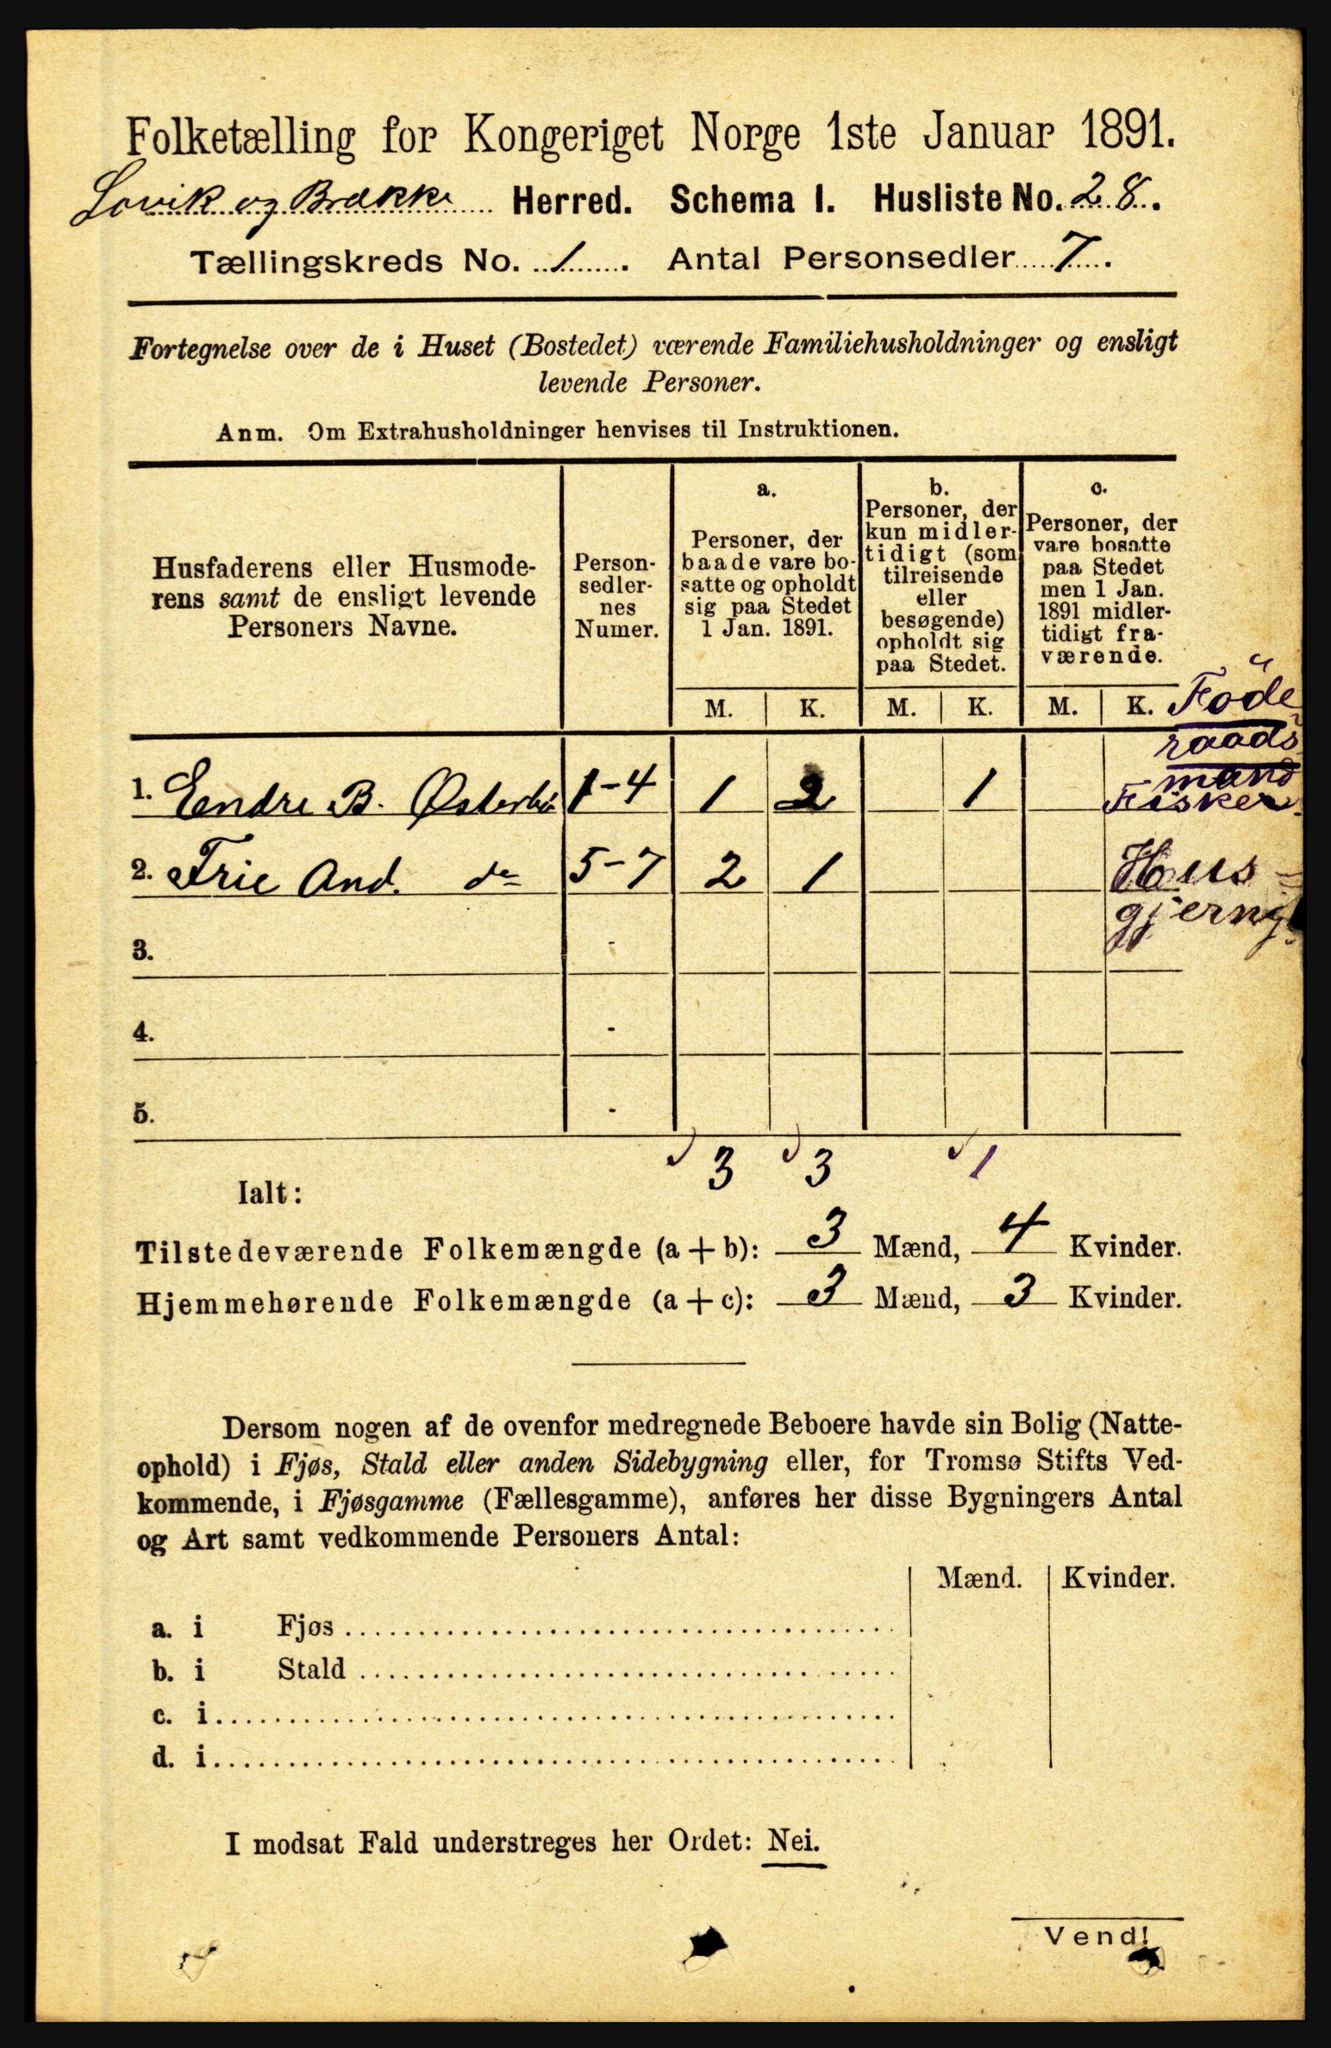 Folketælling for Kongeriget Norge 1ste Januar 1891.
Lavik og Brekke Herred. Schema I. Husliste No. 28.
Tællingskreds No. 1. Antal Personsedler 7.
Fortegnelse over de i Huset (Bostedet) værende Familiehusholdninger og ensligt
levende Personer.
Anm. Om Extrahusholdninger henvises til Instruktionen.
Husfaderens eller Husmode-
rens samt de ensligt levende
Personers Navne.
Person-
sedler-
nes
Numer.
a.
Personer, der
baade vare bo-
satte og opholdt
sig paa Stedet
1 Jan. 1891.
b.
Personer, der
kun midler-
tidigt (som
tilreisende
eller
besøgende)
opholdt sig
paa Stedet.
c.
Personer, der
vare bosatte
paa Stedet
men 1 Jan.
1891 midler-
tidigt fra-
værende.
M. K. M. K. M. K.
Föde-
raads
mand
1. Endre B. Østerbø 1-4 1 2 1 Fisker
2. Frie And. do 5-7 2 1 Hus-
gjerng.
3. -
4. -
5. -
3 3 1
Ialt:
Tilstedeværende Folkemængde (a+b): 3 Mænd, 4 Kvinder.
Hjemmehørende Folkemængde (a+c): 3 Mænd, 3 Kvinder.
Dersom nogen af de ovenfor medregnede Beboere havde sin Bolig (Natte-
ophold) i Fjøs, Stald eller anden Sidebygning eller, for Tromsø Stifts Ved-
kommende, i Fjøsgamme (Fællesgamme), anføres her disse Bygningers Antal
og Art samt vedkommende Personers Antal:
Mænd. Kvinder.
a. i Fjøs
b. i Stald
c. i
d. i
I modsat Fald understreges her Ordet: Nei.
Vend!